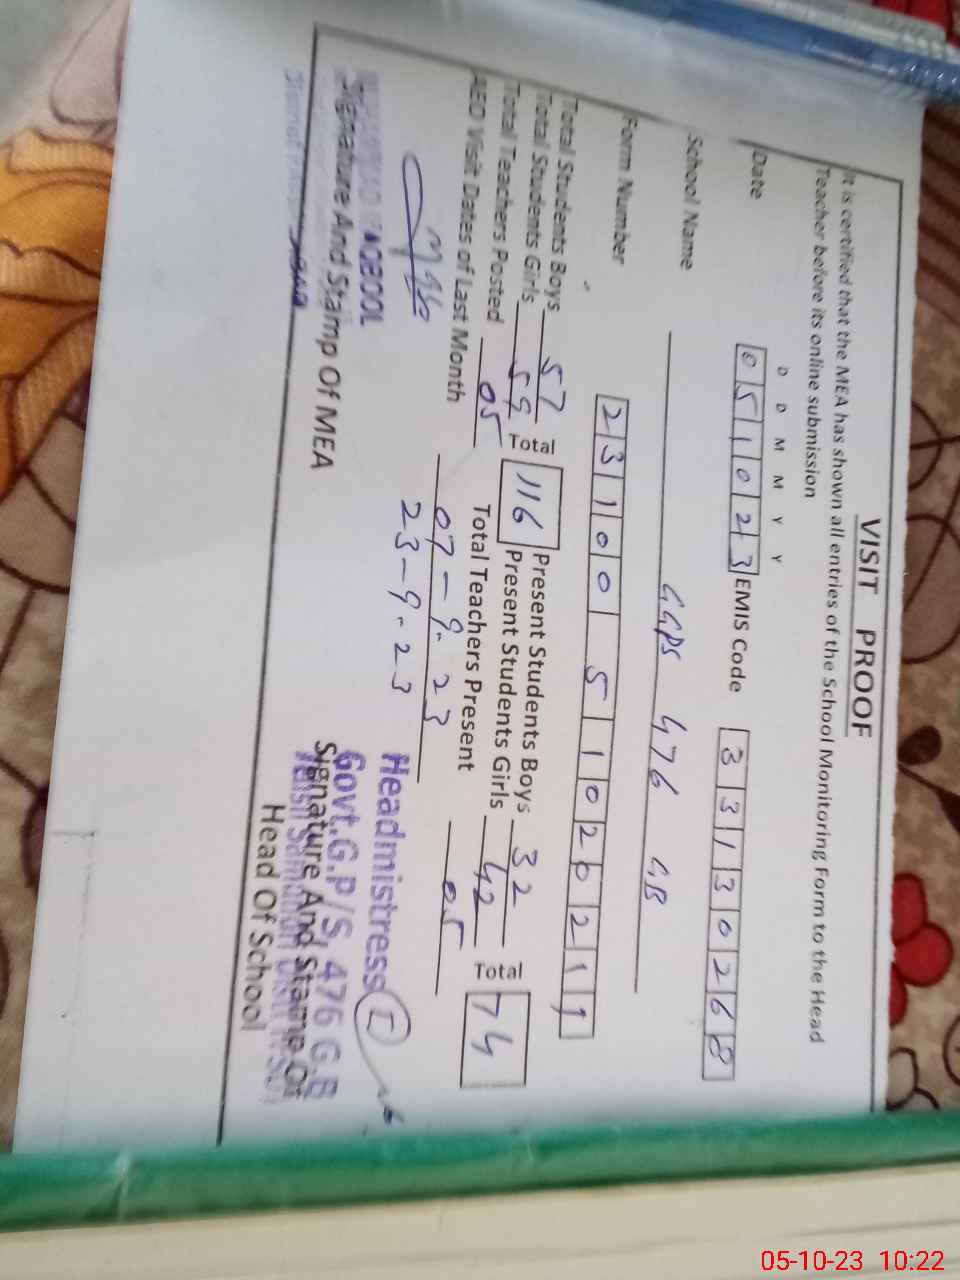 VISIT PROOF
It is certified that the MEA has shown all entries of the School Monitoring Form to the Head
Teacher before its online submission
D D M M Y Y
Date 051023 EMIS Code 33130268
School Name GGPS 476 GB
Form Number 23100 51020211
Total Students Boys 57 Total 116 Present Students Boys 32 Total 74
Total Students Girls 59 Present Students Girls 42
Total Teachers Posted 05 Total Teachers Present 05
AEO Visit Dates of Last Month 07-9-23
23-9-23
Headmistress
Govt.G.P/S, 476 G.B
Signature And Stamp Of MEA
Signature And Stamp Of
Head Of School
05-10-23 10:22